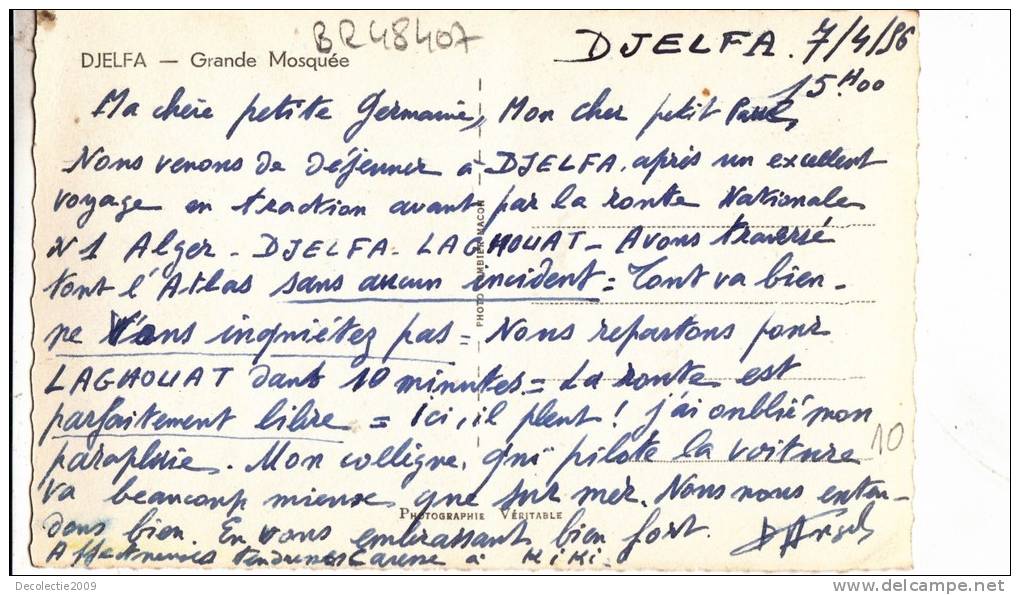 BR48407
DJELFA — Grande Mosquée
DJELFA. 7/4/56
15H00
Ma chère petite Germaine, Mon cher petit Paul,
Nous venons de déjeuner à DJELFA. après un excellent
voyage en traction avant par la route Nationale
N 1 Alger - DJELFA - LAGHOUAT - Avons traversé
tout l'Atlas sans aucun incident = Tout va bien -
ne Vous inquiétez pas = Nous repartons pour
LAGHOUAT dans 10 minutes = La route est
parfaitement libre = ici, il pleut ! j'ai oublié mon
parapluie. Mon collègue, qui pilote la voiture
va beaucoup mieux que sur mer. Nous nous enten-
dons bien. En vous embrassant bien fort.
Affectueuses tendresses Caresse à KiKi.
10
PHOTO COMBIER MACON
PHOTOGRAPHIE VÉRITABLE
Decolectie2009
www.delcampe.net